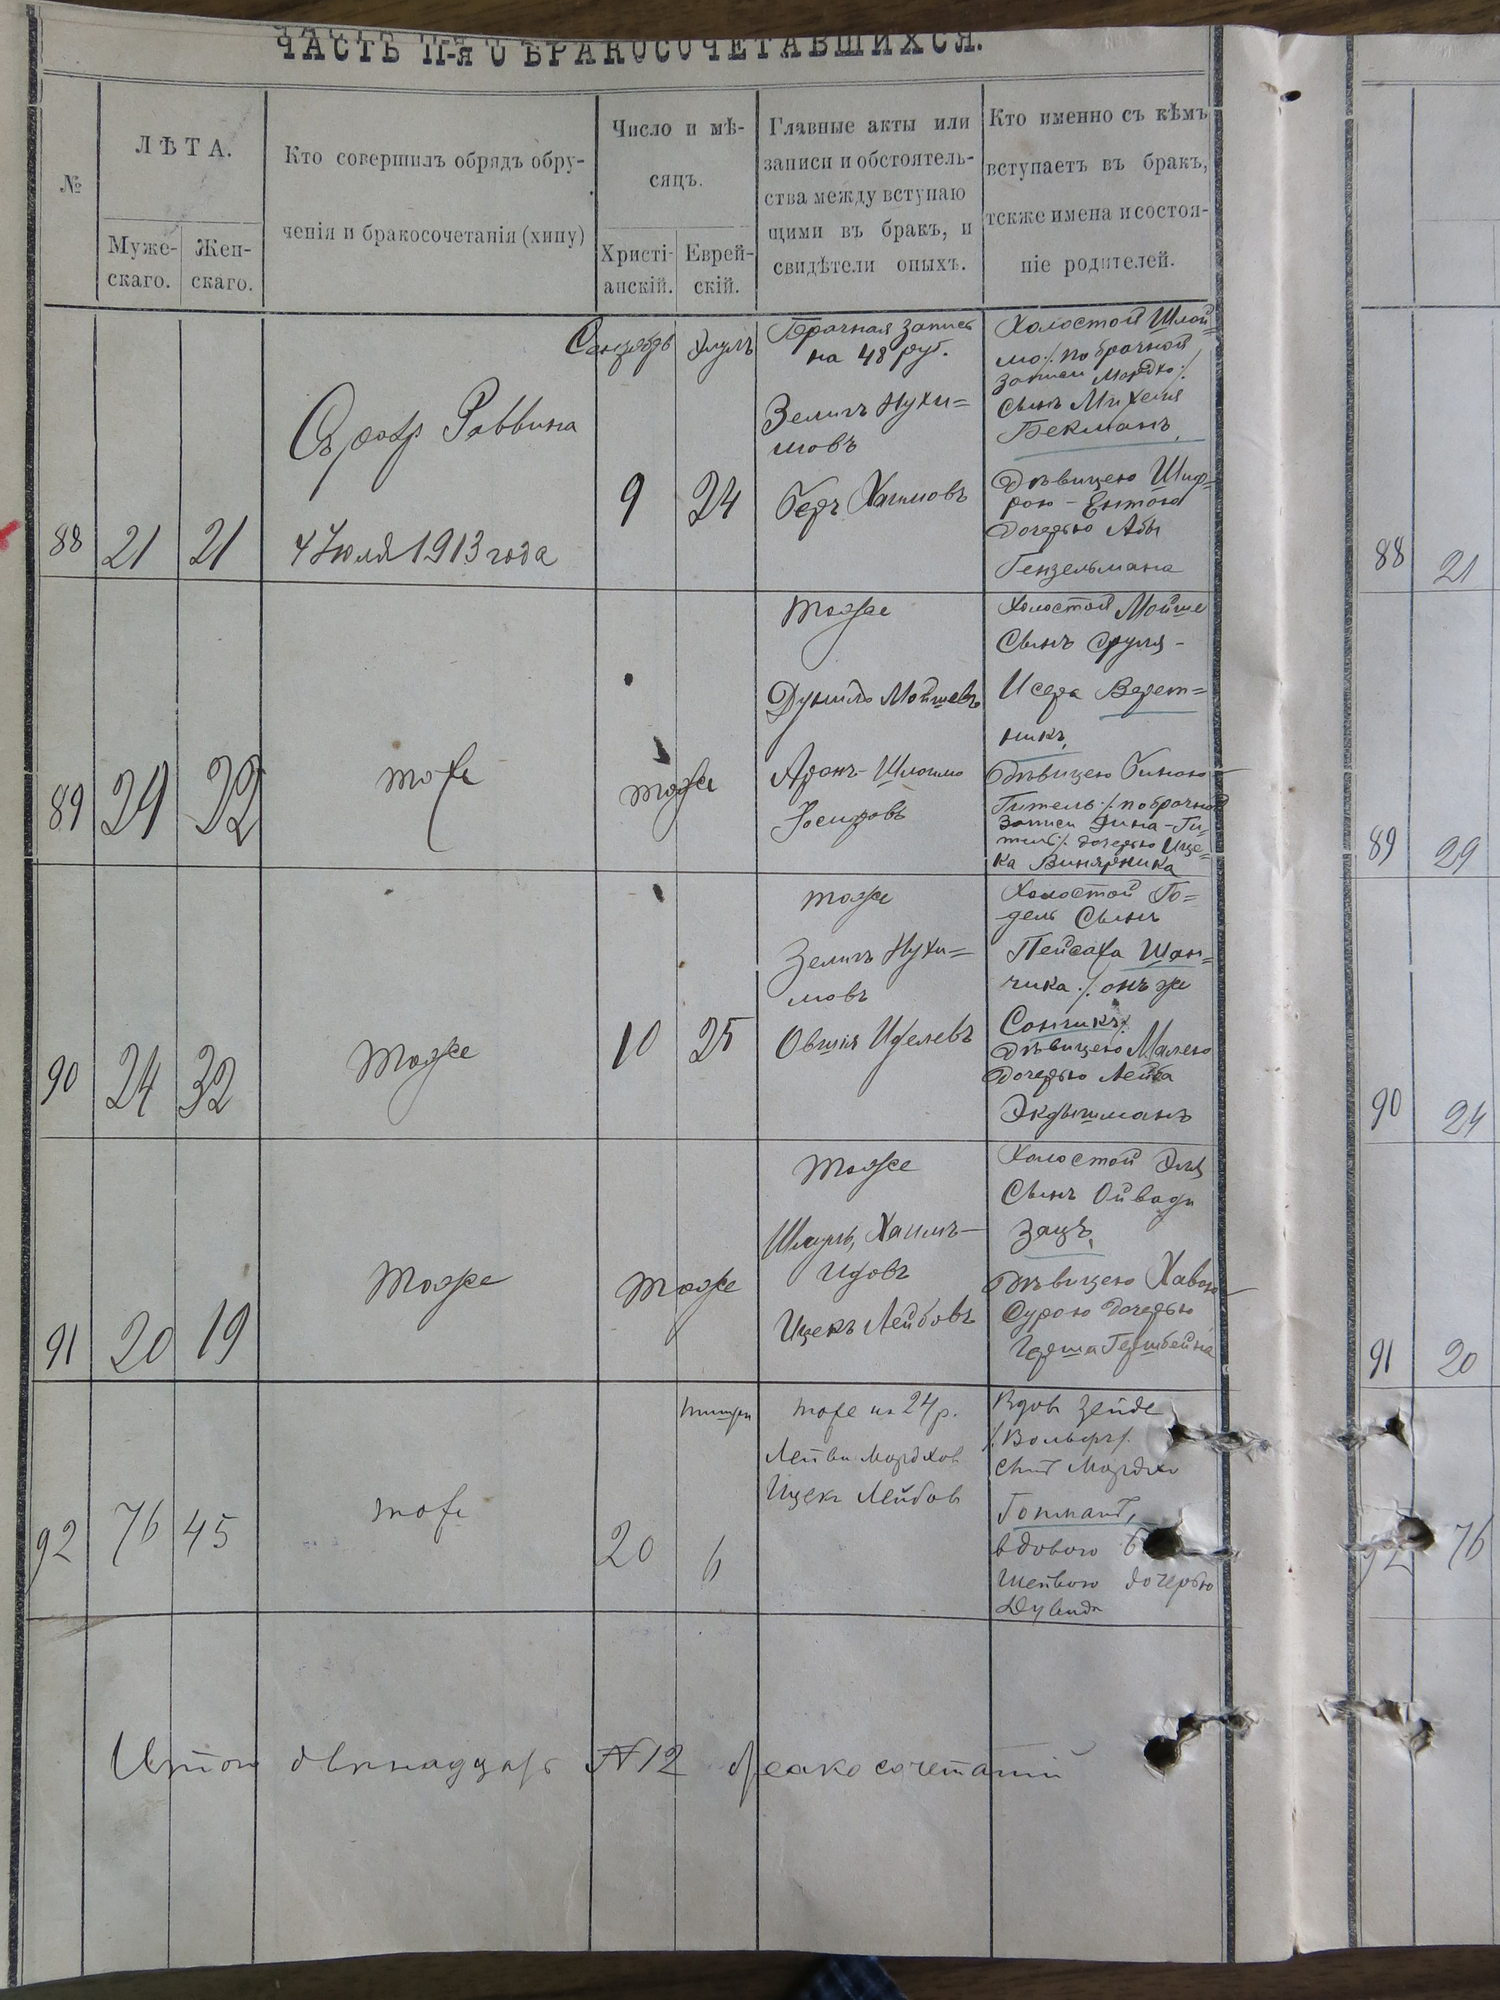 ЧАСТЬ II-я О БРАКОСОЧЕТАВШИХСЯ.
№
ЛѢТА.
Муже-
скаго.
Жен-
скаго.
Кто совершилъ обрядъ обру-
ченія и бракосочетанія (хипу)
Число и мѣ-
сяцъ.
Христі-
анскій.
Еврей-
скій.
Главные акты или
записи и обстоятель-
ства между вступаю
щими въ бракъ, и
свидѣтели оныхъ.
Кто именно съ кѣмъ
вступаетъ въ бракъ,
тскже имена и состоя-
ніе родителей.
88
21
21
Раввина
4 Іюля 1913 года
Сентябрь
Элулъ
9
24
Брачная запись
на 48 руб.
Зелигъ Нухи=
мовъ
Беръ Хаимовъ
Холостой Шлой=
мо ·/. по брачной
записи Мордко ·/.
сынъ Михеля
Бекманъ,
Дѣвицею Шиф=
рою - Ентою
дочерью Абы
Гензельмана
89
29
32
тоже
тоже
тоже
Дувидъ Мойшевъ
Аронъ-Шлоимо
Іосифовъ
Холостой Мойше
сынъ Сруля-
Исера Верет=
никъ,
Дѣвицею Биною-
Гитель ·/. по брачной
записи Дина-Ги-
тель ·/. дочерью Ице=
ка Винярника
90
24
32
тоже
10
25
тоже
Зелигъ Нухи=
мовъ
Овшія Иделевъ
Холостой Го=
дель сынъ
Пейсаха Шан=
чика ·/. онъ же
Санчикъ ·/.
Дѣвицею Малею
дочерью Лейба
Экдышманъ
91
20
19
тоже
тоже
тоже
Шмуль, Хаимъ-
Идовъ
Ицекъ Лейбовъ
Холостой Эля
сынъ Ойвади
Зацъ,
Дѣвицею Хавою-
Сурою дочерью
Герша Герибейна
92
76
45
тоже
Тишри
20
6
тоже на 24 р.
Лейви Мордков
Ицек Лейбов
Вдов Зейде
/. Вольфъ /.
сынъ Мордко
Гопманъ,
вдовою Б
Шейвою дочерью
Дувида
Итого двенадцать № 12 бракосочетаній
88
21
89
29
90
24
91
20
92
76